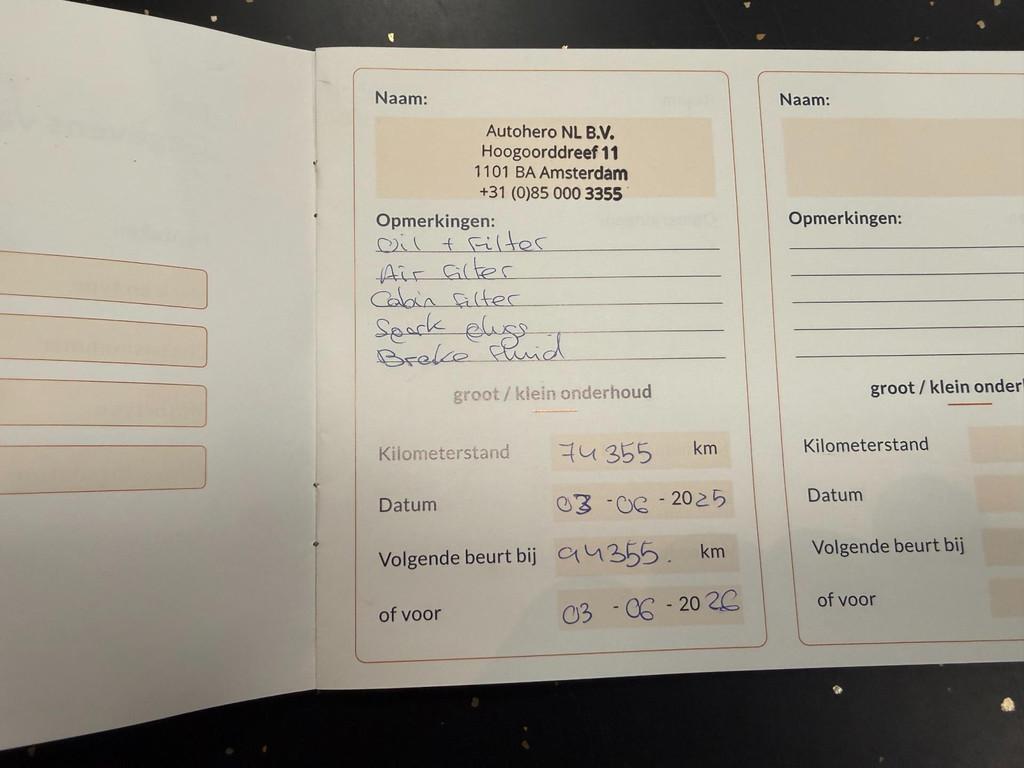 Naam:
Autohero NL B.V.
Hoogoorddreef 11
1101 BA Amsterdam
+31 (0)85 000 3355
Opmerkingen:
Oil + Filter
Air Filter
Cabin Filter
Spark plugs
Breke Fluid
groot / klein onderhoud
Kilometerstand 74355 km
Datum 03 - 06 - 2025
Volgende beurt bij 94355. km
of voor 03 - 06 - 2026
Naam:
Opmerkingen:
groot / klein onder
Kilometerstand
Datum
Volgende beurt bij
of voor